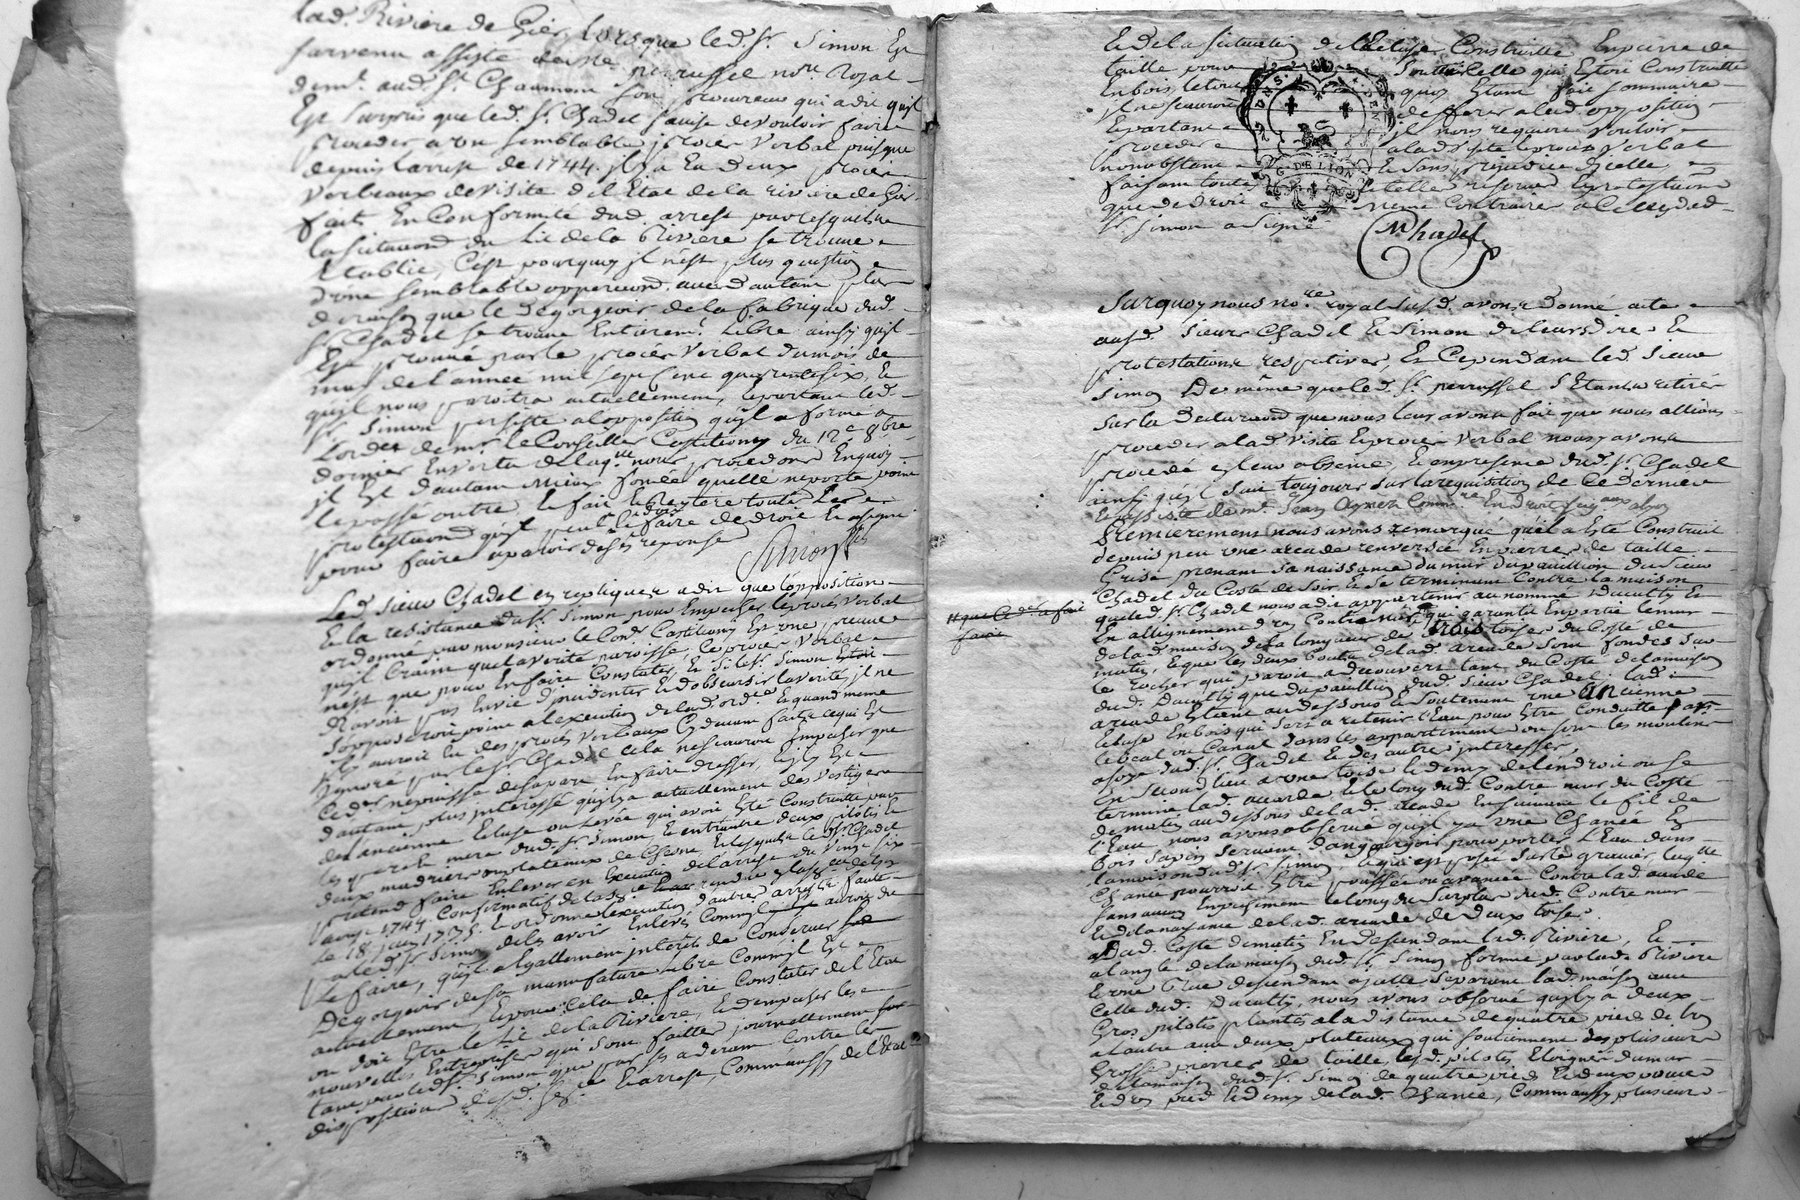 lad. Riviere de Gier, lorsque led. Sr. Simon Est
survenu assisté de me perrussel nore. Royal
demt. aud. St. Chaumont son procureur qui a dit qu'il
Est surpris que led. Sr. Chadel puisse de vouloir faire
proceder a un semblable procier verbal puisque
depuis larrest de 1744. il y a Eu deux procier
verbeaux de visite d l'Etat de la riviere de Gier
fait En Conformité dud. arrest par lesquels
la situation du Lit de la Riviere se trouve
Etablie, C'est pourquoy il n'est plus question
d'une semblable opperation avec d'autant plus
de raison que le degorgeoir de la fabrique dud.
Sr. Chadel se trouve Entierement Libre ainsy quil
Est prouvé par le procier verbal du mois de
may de l'année mil sept Cent quarante six, Et
quil nous paroitra actuellement, Et partant led.
Sr. Simon persiste a lopposition quil a formé a
Lordre de mr. le Conseiller Castilliony du 12e 8bre
dernier En vertu de laqlle. nous procedons En quoy
il Est d'autant mieux fondé quelle ne porte point
le passé outre, Et fait Et reitere toutes Les
protestations quil peut Et doit faire de droit Et assigne
pour faire apparoir de ses reponse
Simon
Led. sieur Chadel en replique a dit que l'opposition
Et la resistance du Sr. Simon pour Empecher le procés verbal
ordonné par monsieur le Cons. Castilliony Est une preuve
quil Craint que la verité paroisse, Ce procés verbal
n'est que pour En faire Constater, Et si le Sr. Simon
N'avoit pas Envie d'eluder Et d'obscursir la verité, il ne
s'opposeroit point a l'execution de lad. ord.ce Et quand meme
il y auroit Eu des procés verbaux Cy devant faits ce qui Est
ignoré par le Sr. Chadel cela ne scauroit Empecher que
Ce der. ne puisse de sa part En faire dresser, Et il y Est
dautant plus interessé quil y a actuellement des vestiges
de l'ancienne Ecluse ou Levée qui avoit Eté Construitte par
les pere Et mere dud. Sr. Simon Et entr'autre deux pilotis Et
deux madriers ou plateaux de Chesne Et lesquels le d. Sr. Chadel
pretend faire Enlever en Execution de larrest du vingt six
aoust 1744. Confirmatif de la
le 18. juin 1735. Et ordonne l'execution d'autres arrests faute
par led. Sr. Simon de les avoir Enlevé Comme il auroit du
Le faire, quil a Egallement interets de Conserver
Degorgeoir de sa manufacture libre Comme il Est
actuellement, Et pour Cela de faire Constater de l'Etat
ou doit Etre le Lit de la Riviere, Et d'empecher les
nouvelles Entreprises qui sont faittes journellement
tant par led. Sr. Simon que par ses aderent Contre les
disposition de Et larrest, Comme aussy de l'Etat
Et de la situation de l'Ecluse Construitte En pierre de
taille pour soutenir Celle qui Etoit Construitte
En bois, Et
il ne scauroit deferer a lad. opposition
Et partant il nous requiere vouloir
proceder a lad. visite Et procés verbal
nonobstant Et sans prejudice d'icelle
faisant toutes telles reserves Et protestations
que de droit meme Contraire a Celles dud.
Sr. Simon a signé
M Chadel
Surquoy nous nore. royal susd. avons donné acte
ausd. sieurs Chadel Et Simon de leurs dires Et
protestations respectives, Et Cependant led. sieur
Simon De même que led. Sr. perrussel s'Etants retirés
sur la declaration que nous leur avons fait que nous allions
proceder a lad. visite Et procier verbal nous y avons
procedé Et leur absence, Et en presence dud. Sr. Chadel
ainsy quil suit toujours sur la requisition de Ce dernier
Et assisté de mr. Jean
Premierement nous avons remarqué quil a Eté Construit
depuis peu une arcade renversée En pierre de taille
Grise prenant sa naissance du mur du pavillion du sieur
Chadel du Costé de soir Et se terminant Contre la maison
que led. Sr. Chadel nous a dit appartenir au nommé Dautty Et
En allignement d'un Contre mur qui garantit En partie le mur
de lad. maison de la longueur de trois toises du Costé de
matin, Et que les deux bouts de lad. arcade sont fondés sur
le rocher que paroit a decouvert tant du Costé de la maison
dud. Dautty que du pavillion dud. sieur Chadel, lad.
arcade Etant au dessous Et soutenant une ancienne
Ecluse En bois qui sert a retenir l'Eau pour Etre Conduitte par
le beal ou Canal dans les appartement ou sont les moulins
a soye dud. Sr. Chadel Et des autres interesser
En second lieu a une toise Et demy de lendroit ou se
termine lad. arcade Et le long dud. Contre mur du Costé
de matin au dessous de lad. arcade En suivant le fil de
l'Eau nous avons observé quil y a une Chanée Et
bois sapin servant d'angorgeoir pour porter L'Eau dans
la maison dud. Sr. Simon, Et qui est posée sur le gravier laqlle.
Chanée pourroit Etre poussée ou avancée Contre lad. arcade
sans aucun Empechement le long du surplus dud. Contre mur
Et de la naissance de lad. arcade de deux toises.
Dud. Costé de matin En descendant lad. Riviere, Et
a l'angle de la maison dud. Sr. Simon formé par lad. Riviere
Et une Rue descendant a icelle separant lad. maison avec
Celle dud. Dautty, nous avons observé quil y a deux
Gros pilotis plantés a la distance de quatre pieds de l'un
a l'autre avec deux plateaux qui soutiennent des plusieurs
Grosse pierres de taille, lesd. pilotis Eloignés du mur
de la maison dud. Sr. Simon de quatre pieds Et deux pouces
Et d'un pied Et demy de lad. Chanée, Comme aussy plusieurs